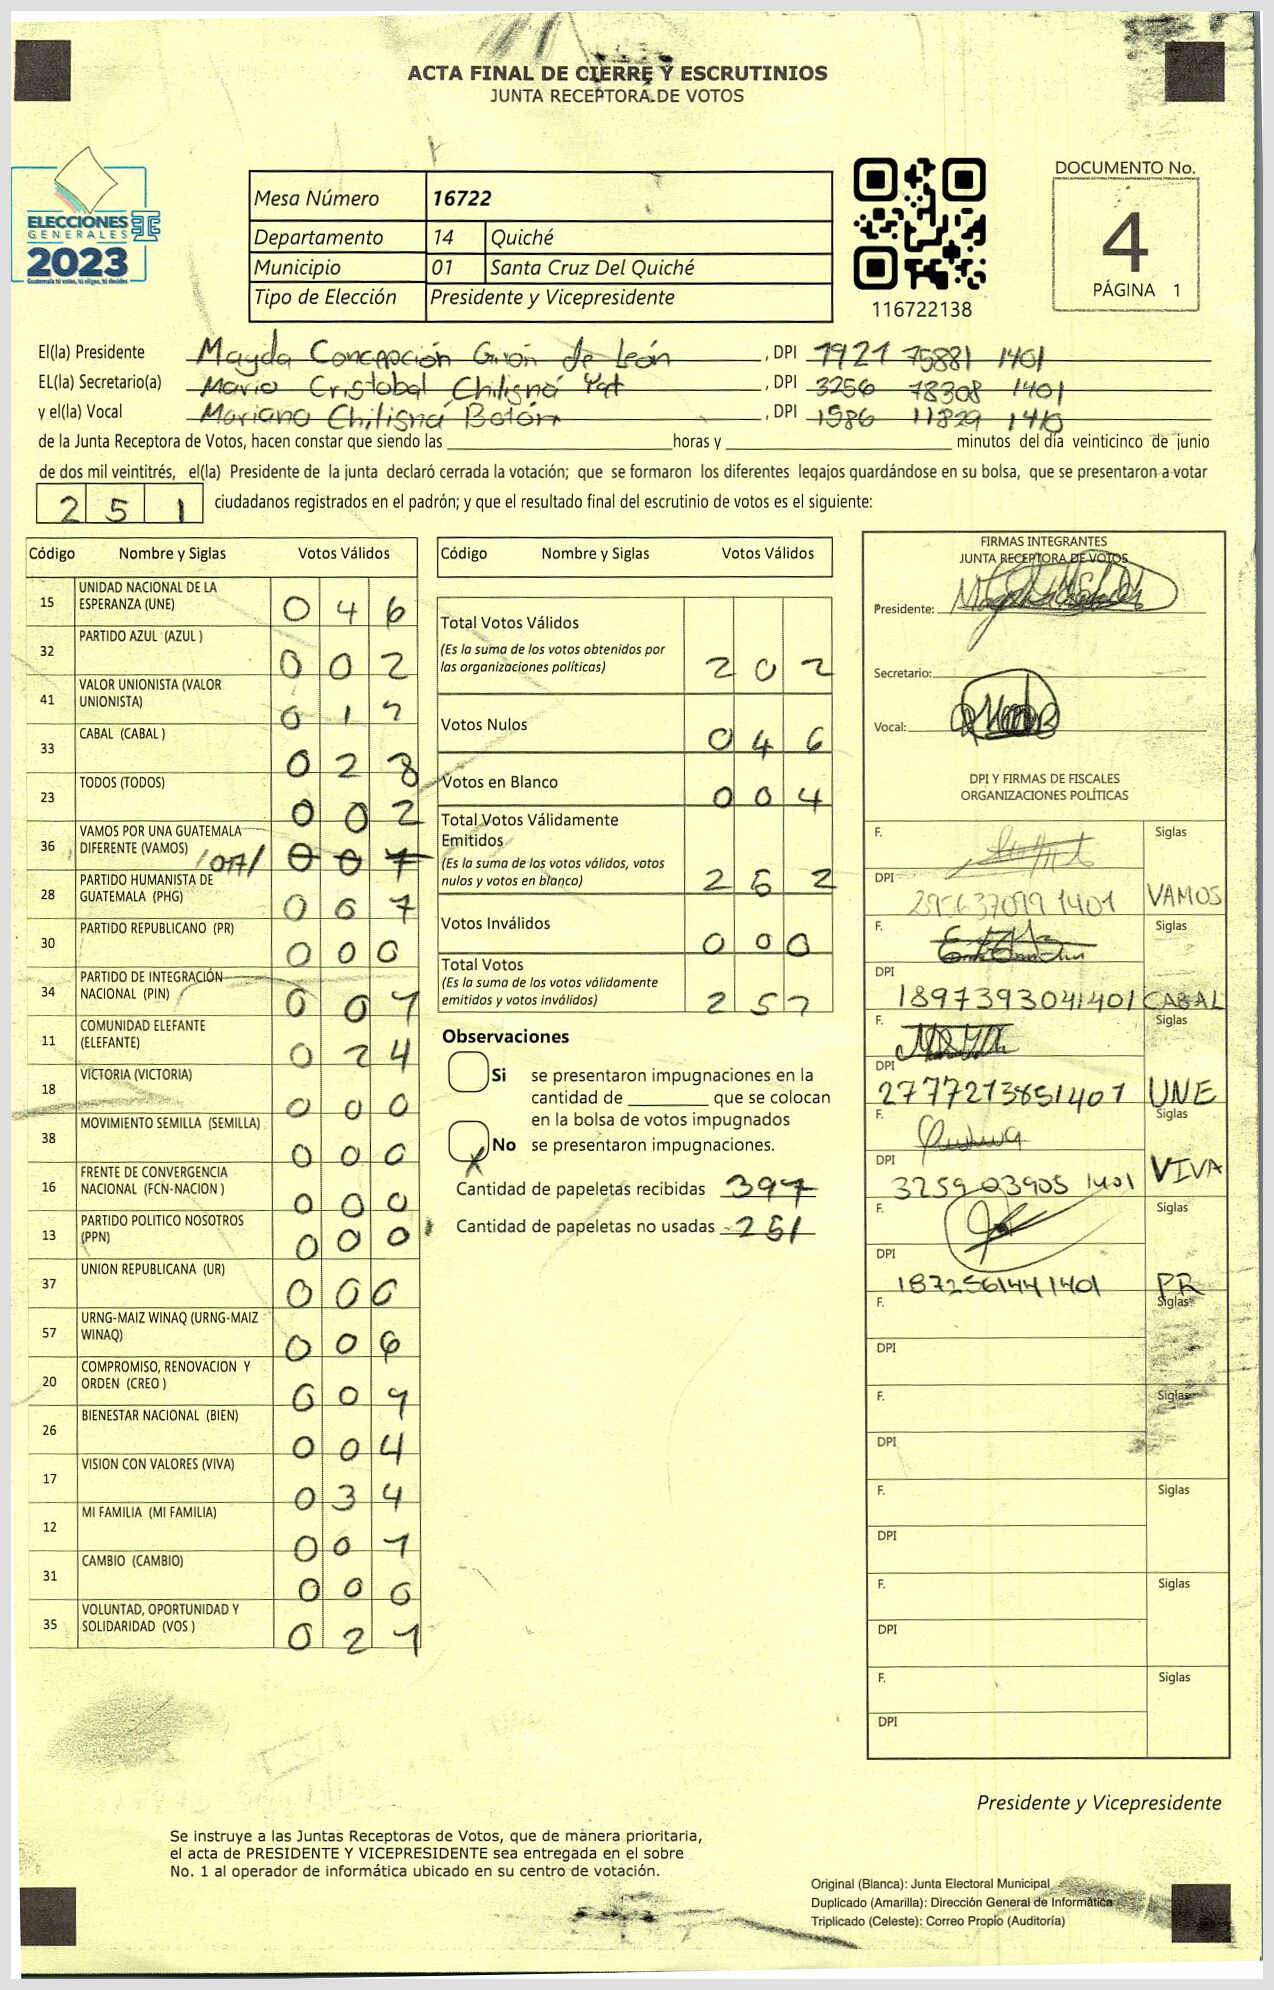 ACTA FINAL DE CIERRE Y ESCRUTINIOS
JUNTA RECEPTORA DE VOTOS
ELECCIONES
GENERALES
2023
Guatemala tú votas, tú eliges, tú decides
Mesa Número 16722
Departamento 14 Quiché
Municipio 01 Santa Cruz Del Quiché
Tipo de Elección Presidente y Vicepresidente
116722138
DOCUMENTO No.
4
PÁGINA 1
El(la) Presidente Magda Concepción Girón de León, DPI 1921 75881 1401
EL(la) Secretario(a) Mario Cristobal Chilisná Yat, DPI 3256 78308 1401
y el(la) Vocal Mariano Chilisná Botón, DPI 1586 11829 1410
de la Junta Receptora de Votos, hacen constar que siendo las ____ horas y ____ minutos del día veinticinco de junio
de dos mil veintitrés, el(la) Presidente de la junta declaró cerrada la votación; que se formaron los diferentes legajos guardándose en su bolsa, que se presentaron a votar
2 5 1 ciudadanos registrados en el padrón; y que el resultado final del escrutinio de votos es el siguiente:
Código Nombre y Siglas Votos Válidos
15 UNIDAD NACIONAL DE LA ESPERANZA (UNE) 0 4 6
32 PARTIDO AZUL (AZUL ) 0 0 2
41 VALOR UNIONISTA (VALOR UNIONISTA) 0 1 7
33 CABAL (CABAL ) 0 2 8
23 TODOS (TODOS) 0 0 2
36 VAMOS POR UNA GUATEMALA DIFERENTE (VAMOS) 017 0 0 7
28 PARTIDO HUMANISTA DE GUATEMALA (PHG) 0 0 7
30 PARTIDO REPUBLICANO (PR) 0 0 0
34 PARTIDO DE INTEGRACIÓN NACIONAL (PIN) 0 0 1
11 COMUNIDAD ELEFANTE (ELEFANTE) 0 2 4
18 VICTORIA (VICTORIA) 0 0 0
38 MOVIMIENTO SEMILLA (SEMILLA) 0 0 0
16 FRENTE DE CONVERGENCIA NACIONAL (FCN-NACION ) 0 0 0
13 PARTIDO POLITICO NOSOTROS (PPN) 0 0 0
37 UNION REPUBLICANA (UR) 0 0 0
57 URNG-MAIZ WINAQ (URNG-MAIZ WINAQ) 0 0 6
20 COMPROMISO, RENOVACION Y ORDEN (CREO ) 0 0 1
26 BIENESTAR NACIONAL (BIEN) 0 0 4
17 VISION CON VALORES (VIVA) 0 3 4
12 MI FAMILIA (MI FAMILIA) 0 0 1
31 CAMBIO (CAMBIO) 0 0 0
35 VOLUNTAD, OPORTUNIDAD Y SOLIDARIDAD (VOS ) 0 2 1
Código Nombre y Siglas Votos Válidos
Total Votos Válidos
(Es la suma de los votos obtenidos por
las organizaciones políticas) 2 0 2
Votos Nulos 0 4 6
Votos en Blanco 0 0 4
Total Votos Válidamente
Emitidos
(Es la suma de los votos válidos, votos
nulos y votos en blanco) 2 5 2
Votos Inválidos 0 0 0
Total Votos
(Es la suma de los votos válidamente
emitidos y votos inválidos) 2 5 2
Observaciones
Si se presentaron impugnaciones en la
cantidad de ____ que se colocan
en la bolsa de votos impugnados
X No se presentaron impugnaciones.
Cantidad de papeletas recibidas 397
Cantidad de papeletas no usadas 251
FIRMAS INTEGRANTES
JUNTA RECEPTORA DE VOTOS
Presidente:
Secretario:
Vocal:
DPI Y FIRMAS DE FISCALES
ORGANIZACIONES POLÍTICAS
F. Siglas
DPI 295637099 1401 VAMOS
F. Siglas
DPI 1897393041401 CABAL
F. Siglas
DPI 2777213851401 UNE
F. Siglas
DPI 3259 03905 1401 VIVA
F. Siglas
DPI 1872561441401 PR
F. Siglas
DPI
F. Siglas
DPI
F. Siglas
DPI
F. Siglas
DPI
F. Siglas
DPI
Presidente y Vicepresidente
Se instruye a las Juntas Receptoras de Votos, que de manera prioritaria,
el acta de PRESIDENTE Y VICEPRESIDENTE sea entregada en el sobre
No. 1 al operador de informática ubicado en su centro de votación.
Original (Blanca): Junta Electoral Municipal
Duplicado (Amarilla): Dirección General de Informática
Triplicado (Celeste): Correo Propio (Auditoría)